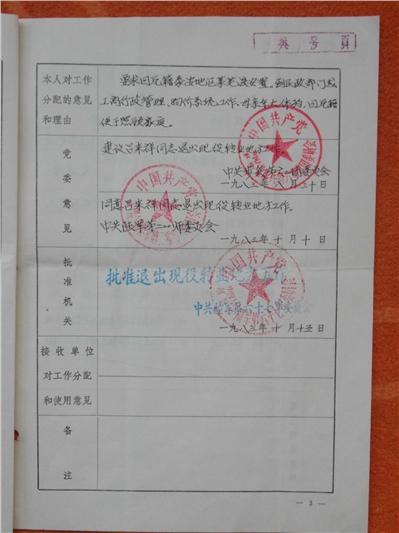 共 号 頁
本人对工作
分配的意见
和理由
要求回原籍泰安地区莱芜县安置。到民政部门或
工商行政管理、
工作。母亲年大体弱,回原籍
便于照顾家庭。
党委意见
建议吕来祥同志退出现役转业地方工作。
中共
委员会
一九八三年八月三十日
同意吕来祥同志退出现役转业地方工作。
中共陆军第二一师委员会
一九八三年十月十日
批准机关
批准退出现役转业地方工作
中共陆军第六十七军委员会
一九八三年十月十五日
接收单位
对工作分配
和使用意见
备注
中国共产党
中国共产党
中国共产党
— 3 —